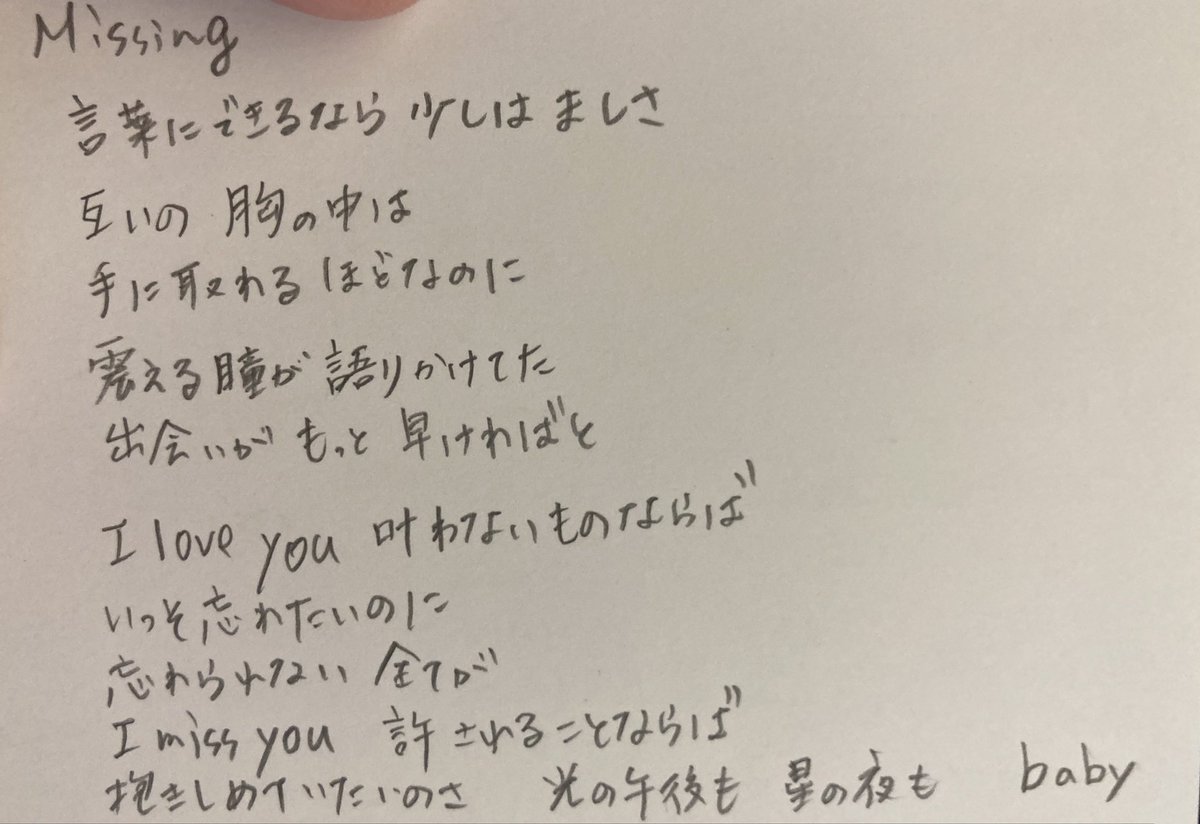 Missing
言葉にできるなら 少しはましさ
互いの 胸の中は
手に取れるほどなのに
震える瞳が 語りかけてた
出会いが もっと 早ければと
I love you 叶わないものならば
いっそ忘れたいのに
忘れられない 全てが
I miss you 許されることならば
抱きしめていたいのさ 光の午後も 星の夜も baby